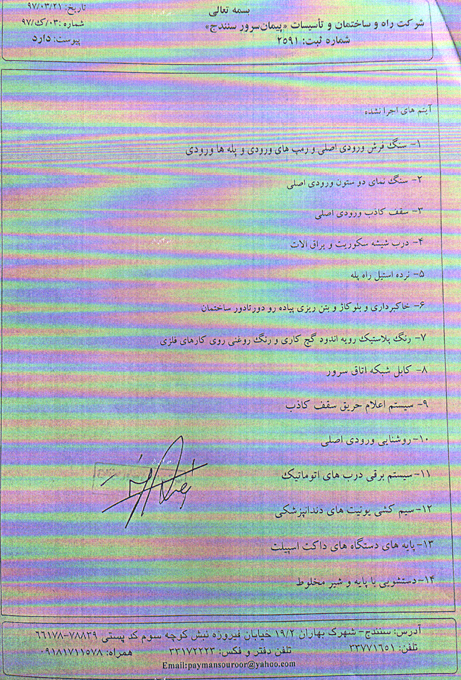 بسمه تعالی
شرکت راه و ساختمان و تأسیسات «پیمان سرور سنندج»
شماره ثبت: ۲۵۹۱
تاریخ: ۹۷/۰۳/۲۱
شماره: ۹۷/ک/۰۳
پیوست: دارد
آیتم های اجرا نشده
۱- سنگ فرش ورودی اصلی و رمپ های ورودی و پله ها ورودی
۲- سنگ نمای دو ستون ورودی اصلی
۳- سقف کاذب ورودی اصلی
۴- درب شیشه سکوریت و یراق الات
۵- نرده استیل راه پله
۶- خاکبرداری و بلوکاژ و بتن ریزی پیاده رو دورتادور ساختمان
۷- رنگ پلاستیک رویه اندود گچ کاری و رنگ روغنی روی کارهای فلزی
۸- کابل شبکه اتاق سرور
۹- سیستم اعلام حریق سقف کاذب
۱۰- روشنایی ورودی اصلی
۱۱- سیستم برقی درب های اتوماتیک
۱۲- سیم کشی یونیت های دندانپزشکی
۱۳- پایه های دستگاه های داکت اسپیلت
۱۴- دستشویی با پایه و شیر مخلوط
آدرس: سنندج- شهرک بهاران ۱۹/۲ خیابان فیروزه نبش کوچه سوم کد پستی ۷۸۸۳۹-۶۶۱۷۸
تلفن: ۳۳۷۷۱۶۵۱ تلفن دفتر و فکس: ۳۳۱۷۲۲۲۳ همراه: ۰۹۱۸۱۷۱۱۵۷۸
Email:paymansouroor@yahoo.com